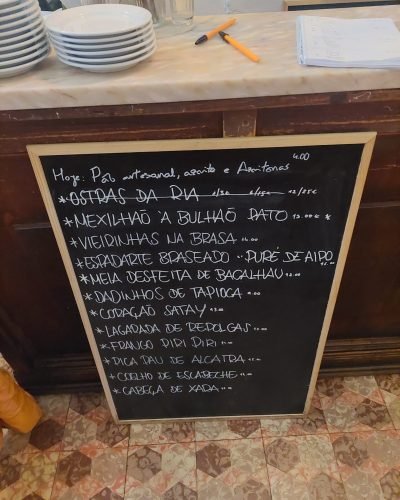 Hoje: Pão artesanal, azeite e Azeitonas 4.00
*OSTRAS DA RIA 1/3€ 6/15€ 12/25€
*MEXILHÃO À BULHÃO PATO 13.00€
*VIEIRINHAS NA BRASA
*ESPADARTE BRASEADO PURÉ DE AIPO
*MEIA DESFEITA DE BACALHAU
*DADINHOS DE TAPIOCA
*CORAÇÃO SATAY
*LAGARADA DE REPOLGAS
*FRANGO PIRI PIRI
*PICA PAU DE ALCATRA
*COELHO DE ESCABECHE
*CABEÇA DE XARA